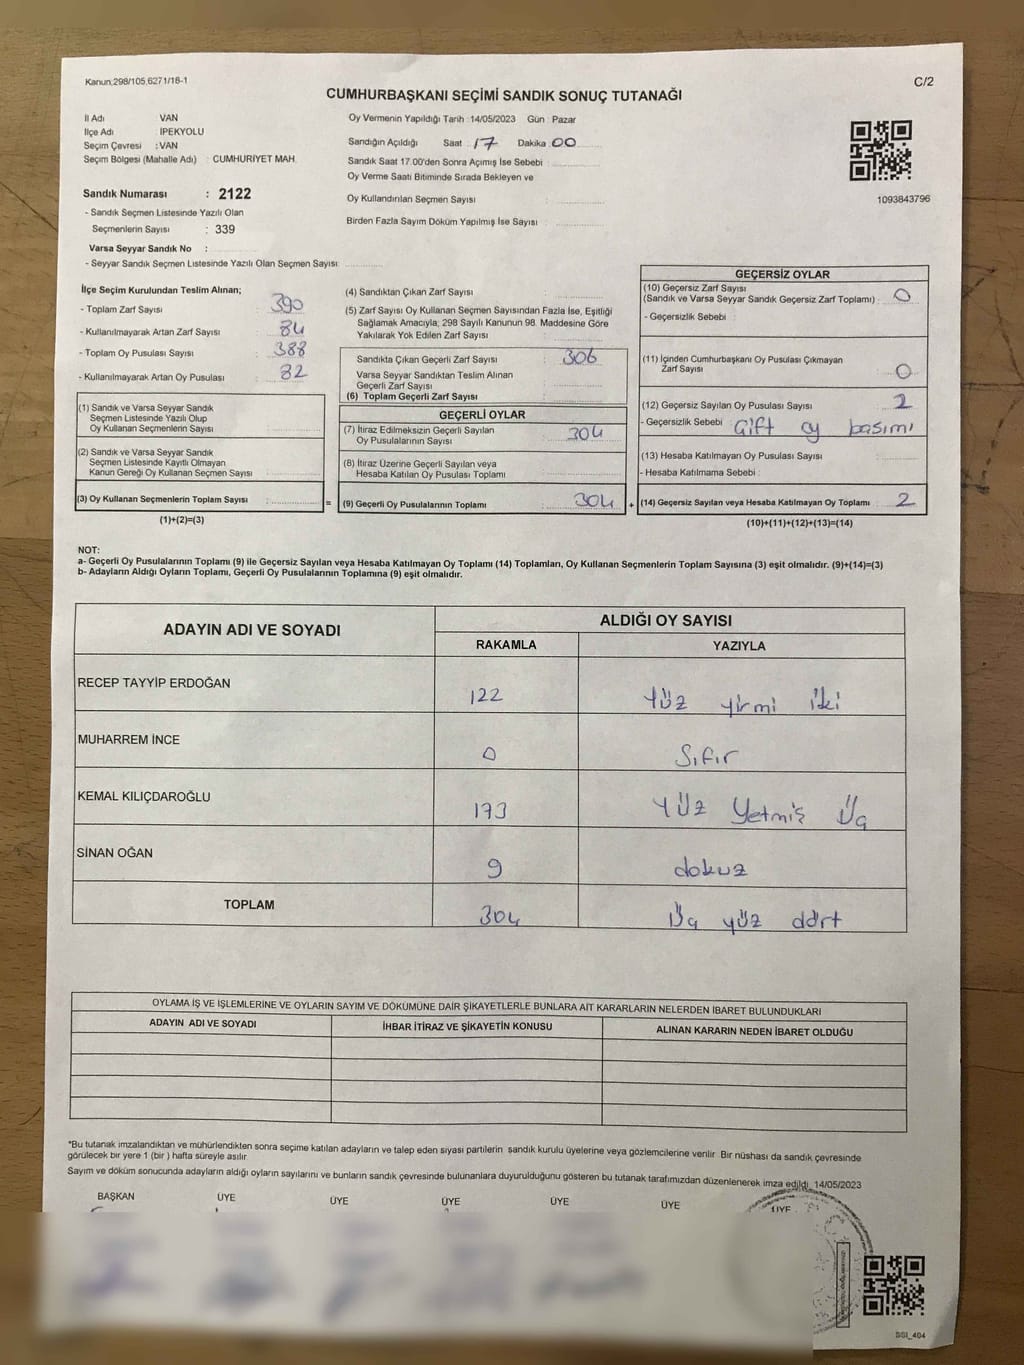 Kanun:298/105,6271/18-1
C/2
CUMHURBAŞKANI SEÇİMİ SANDIK SONUÇ TUTANAĞI
İl Adı VAN
İlçe Adı İPEKYOLU
Seçim Çevresi : VAN
Seçim Bölgesi (Mahalle Adı) : CUMHURİYET MAH.
Sandık Numarası : 2122
- Sandık Seçmen Listesinde Yazılı Olan
Seçmenlerin Sayısı : 339
Varsa Seyyar Sandık No :
- Seyyar Sandık Seçmen Listesinde Yazılı Olan Seçmen Sayısı:
Oy Vermenin Yapıldığı Tarih :14/05/2023 Gün : Pazar
Sandığın Açıldığı Saat 17 Dakika 00
Sandık Saat 17.00'den Sonra Açımış İse Sebebi :
Oy Verme Saati Bitiminde Sırada Bekleyen ve
Oy Kullandırılan Seçmen Sayısı :
Birden Fazla Sayım Döküm Yapılmış İse Sayısı :
1093843796
İlçe Seçim Kurulundan Teslim Alınan;
- Toplam Zarf Sayısı : 390
- Kullanılmayarak Artan Zarf Sayısı : 84
- Toplam Oy Pusulası Sayısı : 388
- Kullanılmayarak Artan Oy Pusulası : 82
(1) Sandık ve Varsa Seyyar Sandık
Seçmen Listesinde Yazılı Olup
Oy Kullanan Seçmenlerin Sayısı
(2) Sandık ve Varsa Seyyar Sandık
Seçmen Listesinde Kayıtlı Olmayan
Kanun Gereği Oy Kullanan Seçmen Sayısı :
(3) Oy Kullanan Seçmenlerin Toplam Sayısı : =
(1)+(2)=(3)
(4) Sandıktan Çıkan Zarf Sayısı :
(5) Zarf Sayısı Oy Kullanan Seçmen Sayısından Fazla İse, Eşitliği
Sağlamak Amacıyla; 298 Sayılı Kanunun 98. Maddesine Göre
Yakılarak Yok Edilen Zarf Sayısı :
Sandıkta Çıkan Geçerli Zarf Sayısı : 306
Varsa Seyyar Sandıktan Teslim Alınan
Geçerli Zarf Sayısı
(6) Toplam Geçerli Zarf Sayısı :
GEÇERLİ OYLAR
(7) İtiraz Edilmeksizin Geçerli Sayılan
Oy Pusulalarının Sayısı : 304
(8) İtiraz Üzerine Geçerli Sayılan veya
Hesaba Katılan Oy Pusulası Toplamı :
(9) Geçerli Oy Pusulalarının Toplamı : 304 +
GEÇERSİZ OYLAR
(10) Geçersiz Zarf Sayısı
(Sandık ve Varsa Seyyar Sandık Geçersiz Zarf Toplamı) : 0
- Geçersizlik Sebebi :
(11) İçinden Cumhurbaşkanı Oy Pusulası Çıkmayan
Zarf Sayısı : 0
(12) Geçersiz Sayılan Oy Pusulası Sayısı : 2
- Geçersizlik Sebebi : Çift oy basımı
(13) Hesaba Katılmayan Oy Pusulası Sayısı :
- Hesaba Katılmama Sebebi :
(14) Geçersiz Sayılan veya Hesaba Katılmayan Oy Toplamı : 2
(10)+(11)+(12)+(13)=(14)
NOT:
a- Geçerli Oy Pusulalarının Toplamı (9) ile Geçersiz Sayılan veya Hesaba Katılmayan Oy Toplamı (14) Toplamları, Oy Kullanan Seçmenlerin Toplam Sayısına (3) eşit olmalıdır. (9)+(14)=(3)
b- Adayların Aldığı Oyların Toplamı, Geçerli Oy Pusulalarının Toplamına (9) eşit olmalıdır.
ADAYIN ADI VE SOYADI ALDIĞI OY SAYISI
RAKAMLA YAZIYLA
RECEP TAYYİP ERDOĞAN 122 Yüz yirmi iki
MUHARREM İNCE 0 Sıfır
KEMAL KILIÇDAROĞLU 173 Yüz Yetmiş Üç
SİNAN OĞAN 9 dokuz
TOPLAM 304 Üç yüz dört
OYLAMA İŞ VE İŞLEMLERİNE VE OYLARIN SAYIM VE DÖKÜMÜNE DAİR ŞİKAYETLERLE BUNLARA AİT KARARLARIN NELERDEN İBARET BULUNDUKLARI
ADAYIN ADI VE SOYADI İHBAR İTİRAZ VE ŞİKAYETİN KONUSU ALINAN KARARIN NEDEN İBARET OLDUĞU
*Bu tutanak imzalandıktan ve mühürlendikten sonra seçime katılan adayların ve talep eden siyasi partilerin sandık kurulu üyelerine veya gözlemcilerine verilir. Bir nüshası da sandık çevresinde
görülecek bir yere 1 (bir) hafta süreyle asılır.
Sayım ve döküm sonucunda adayların aldığı oyların sayılarını ve bunların sandık çevresinde bulunanlara duyurulduğunu gösteren bu tutanak tarafımızdan düzenlenerek imza edildi. 14/05/2023
BAŞKAN ÜYE ÜYE ÜYE ÜYE ÜYE ÜYE
SSI_404